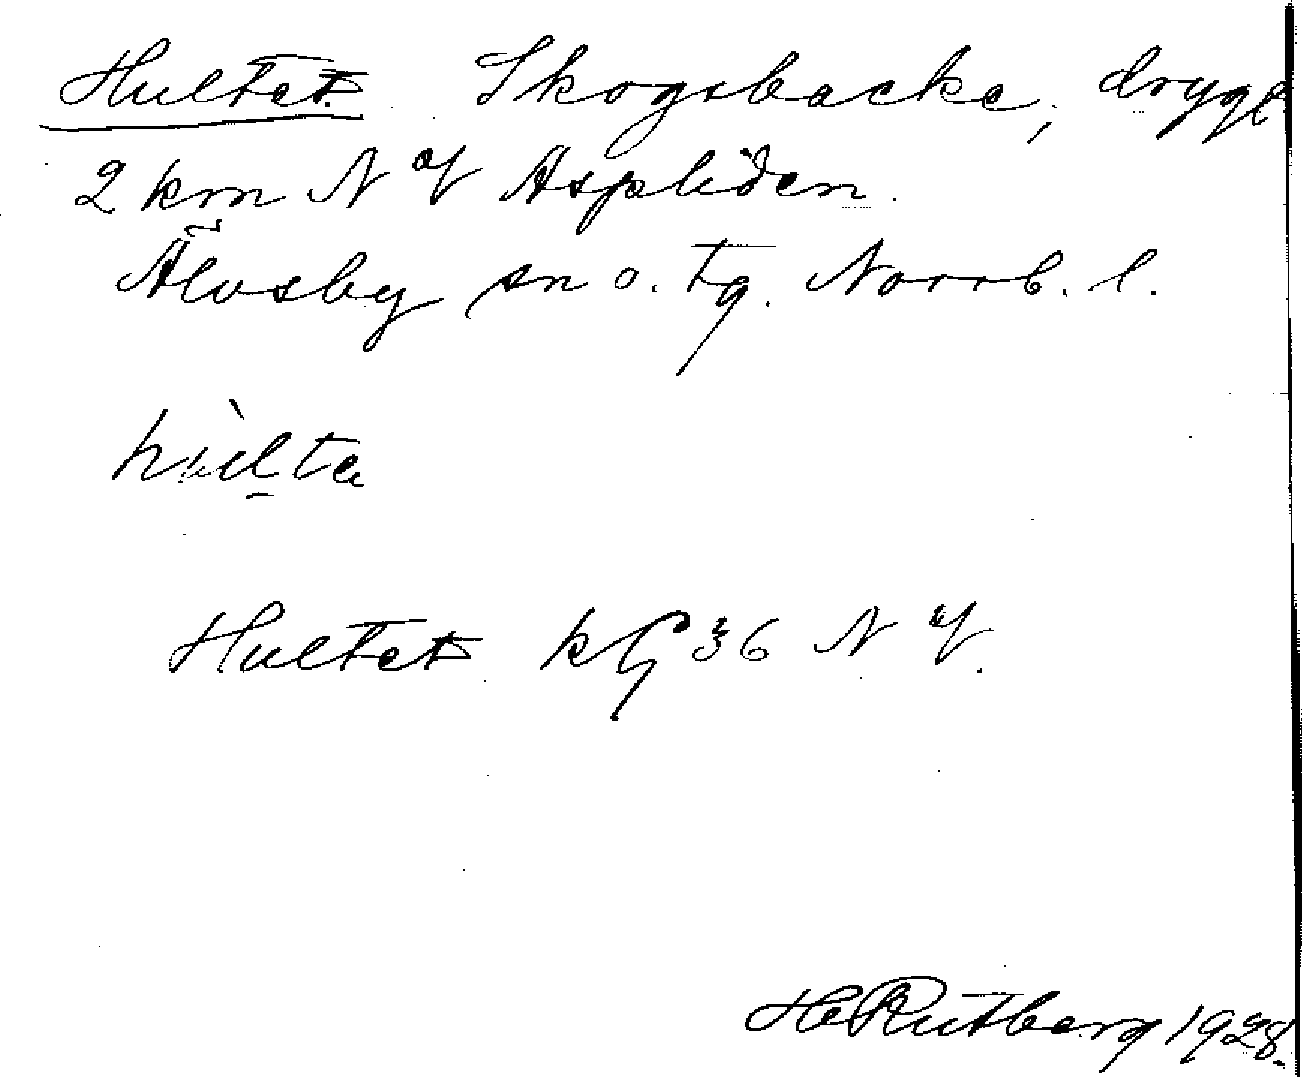 Hultet. Skogsbacke, drygt
2 km N of Aspliden.
Älvsby sn o. tg. Norrb. l.
hùlta
Hultet kbl 36 N V.
HRutberg 1928.